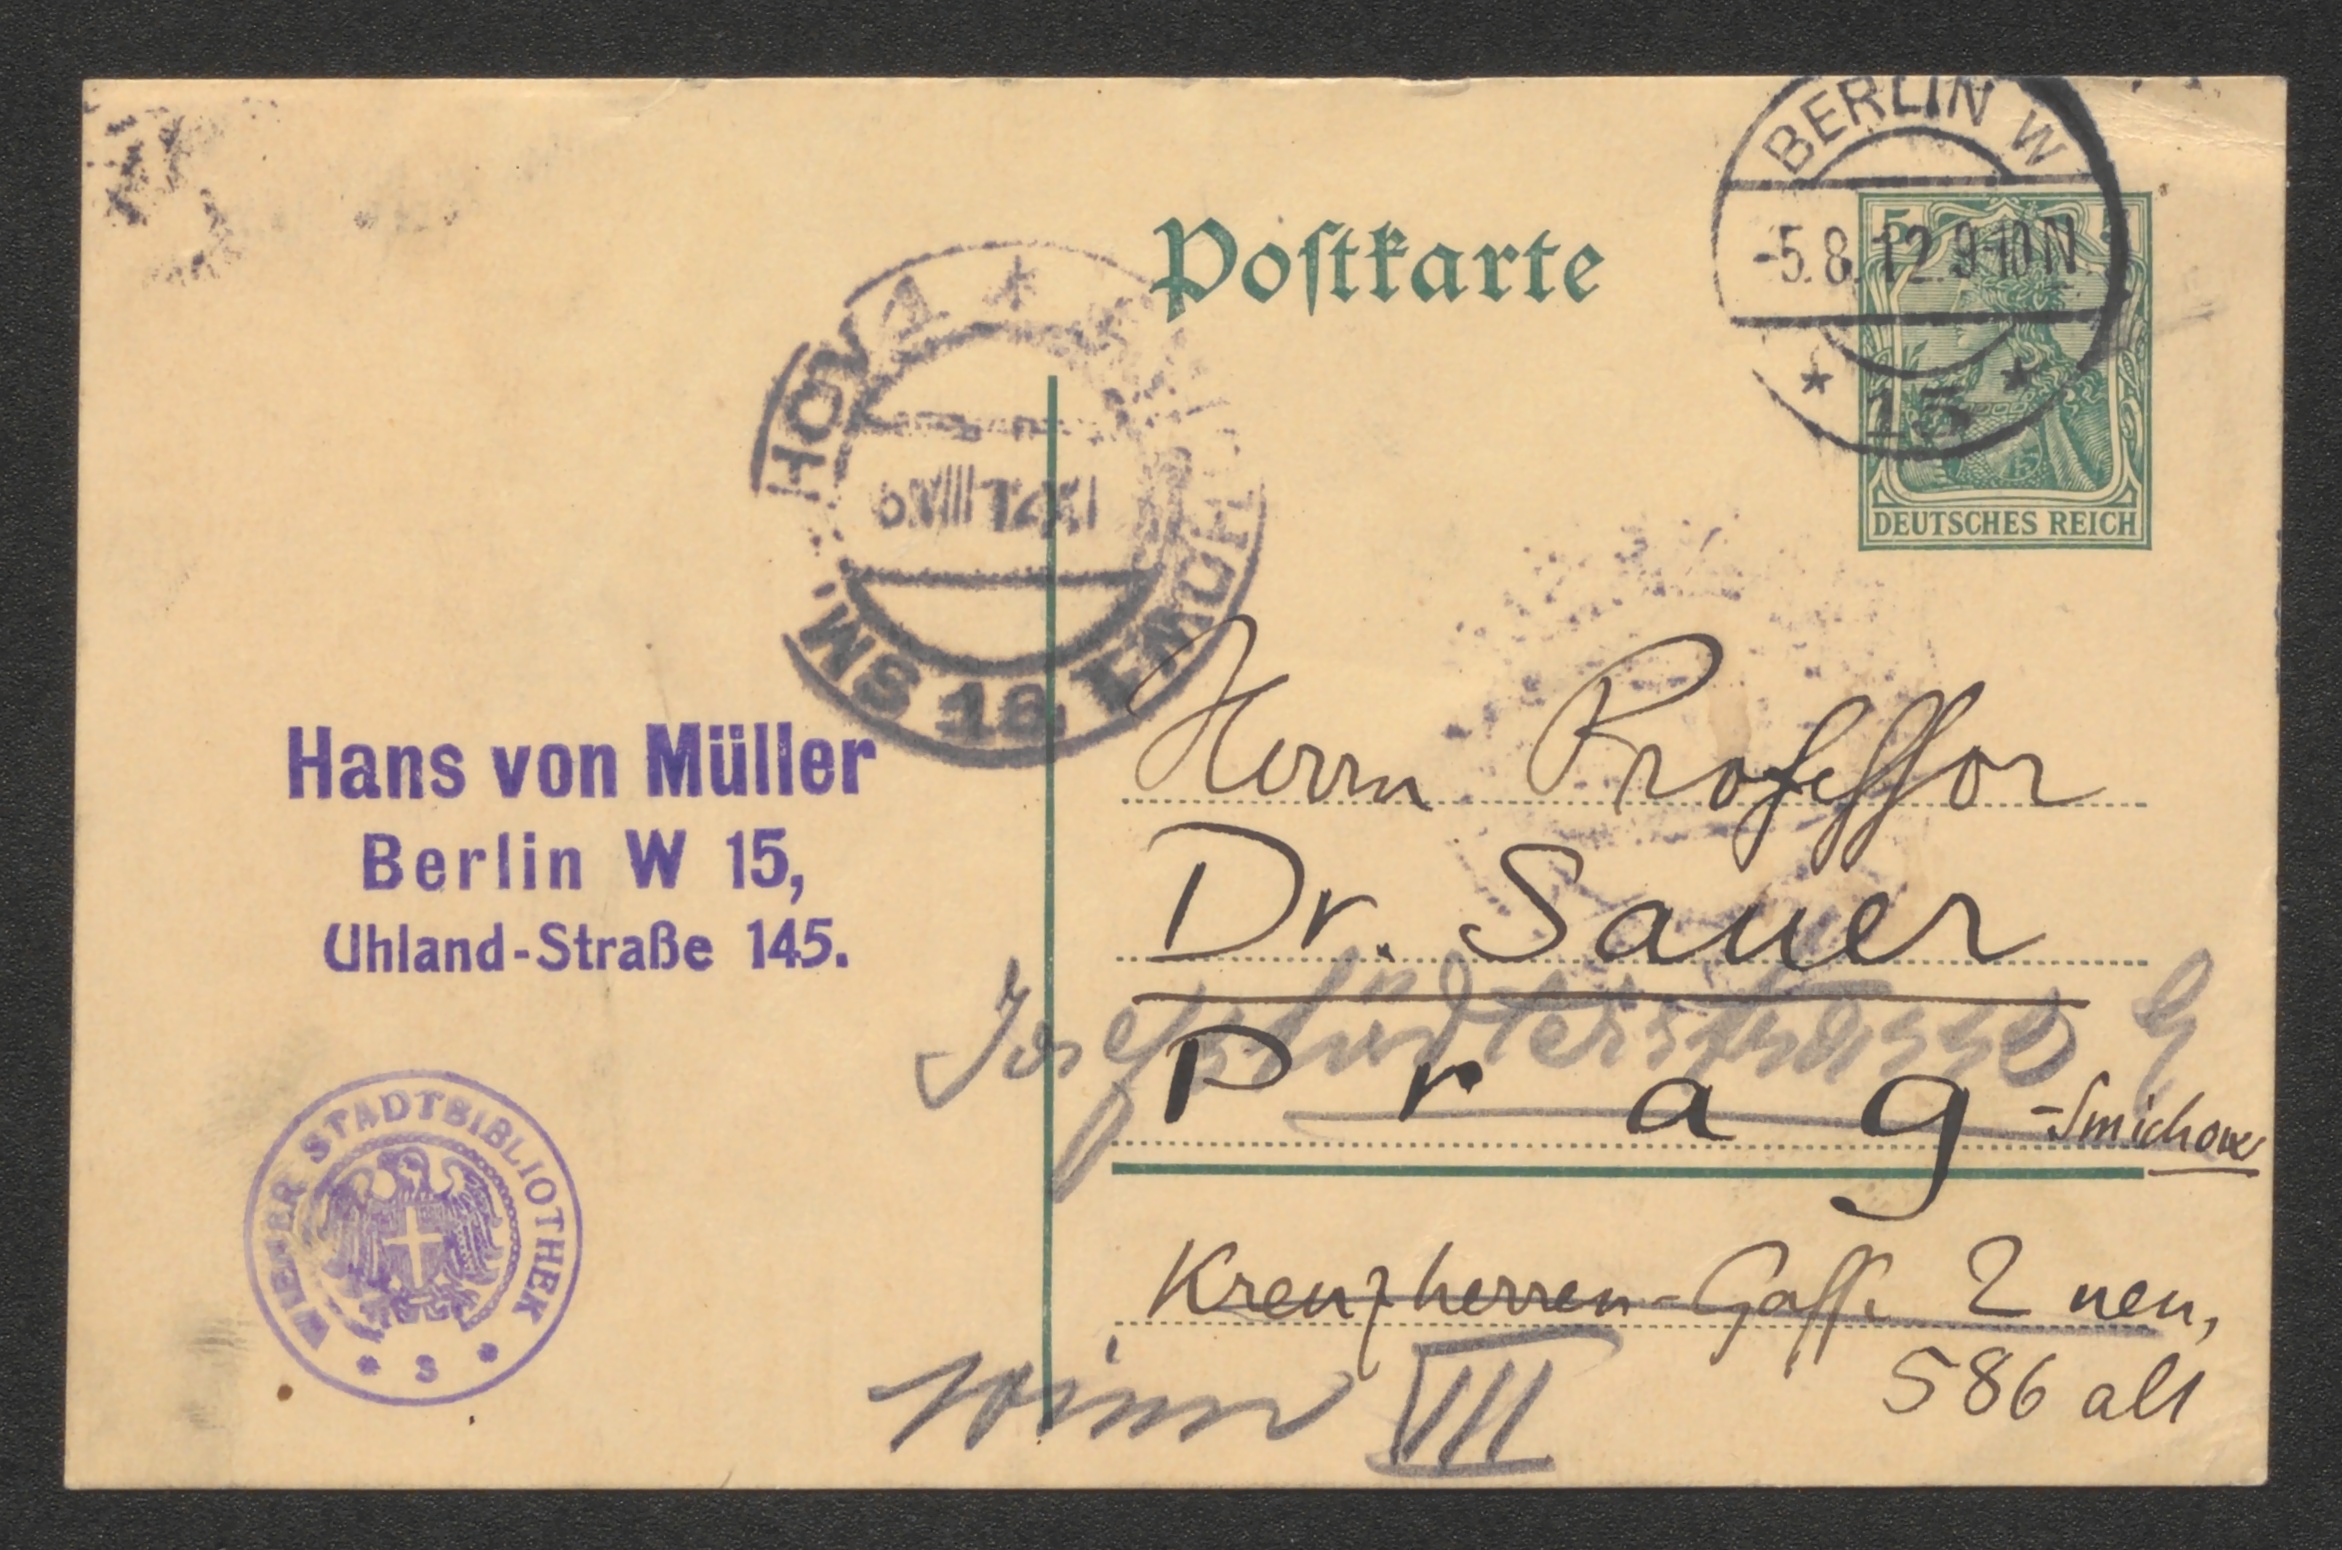 Postkarte
BERLIN W
-5.8.12.9-10N.
* 15 *
5
DEUTSCHES REICH
VIII
Hans von Müller
Berlin W 15,
Uhland-Straße 145.
Herrn Professor
Dr. Sauer
Josefstädterstrasse
Prag -Smichow
Kreuzherren-Gasse 2 neu,
586 alt
Wien VIII
WIENER STADTBIBLIOTHEK